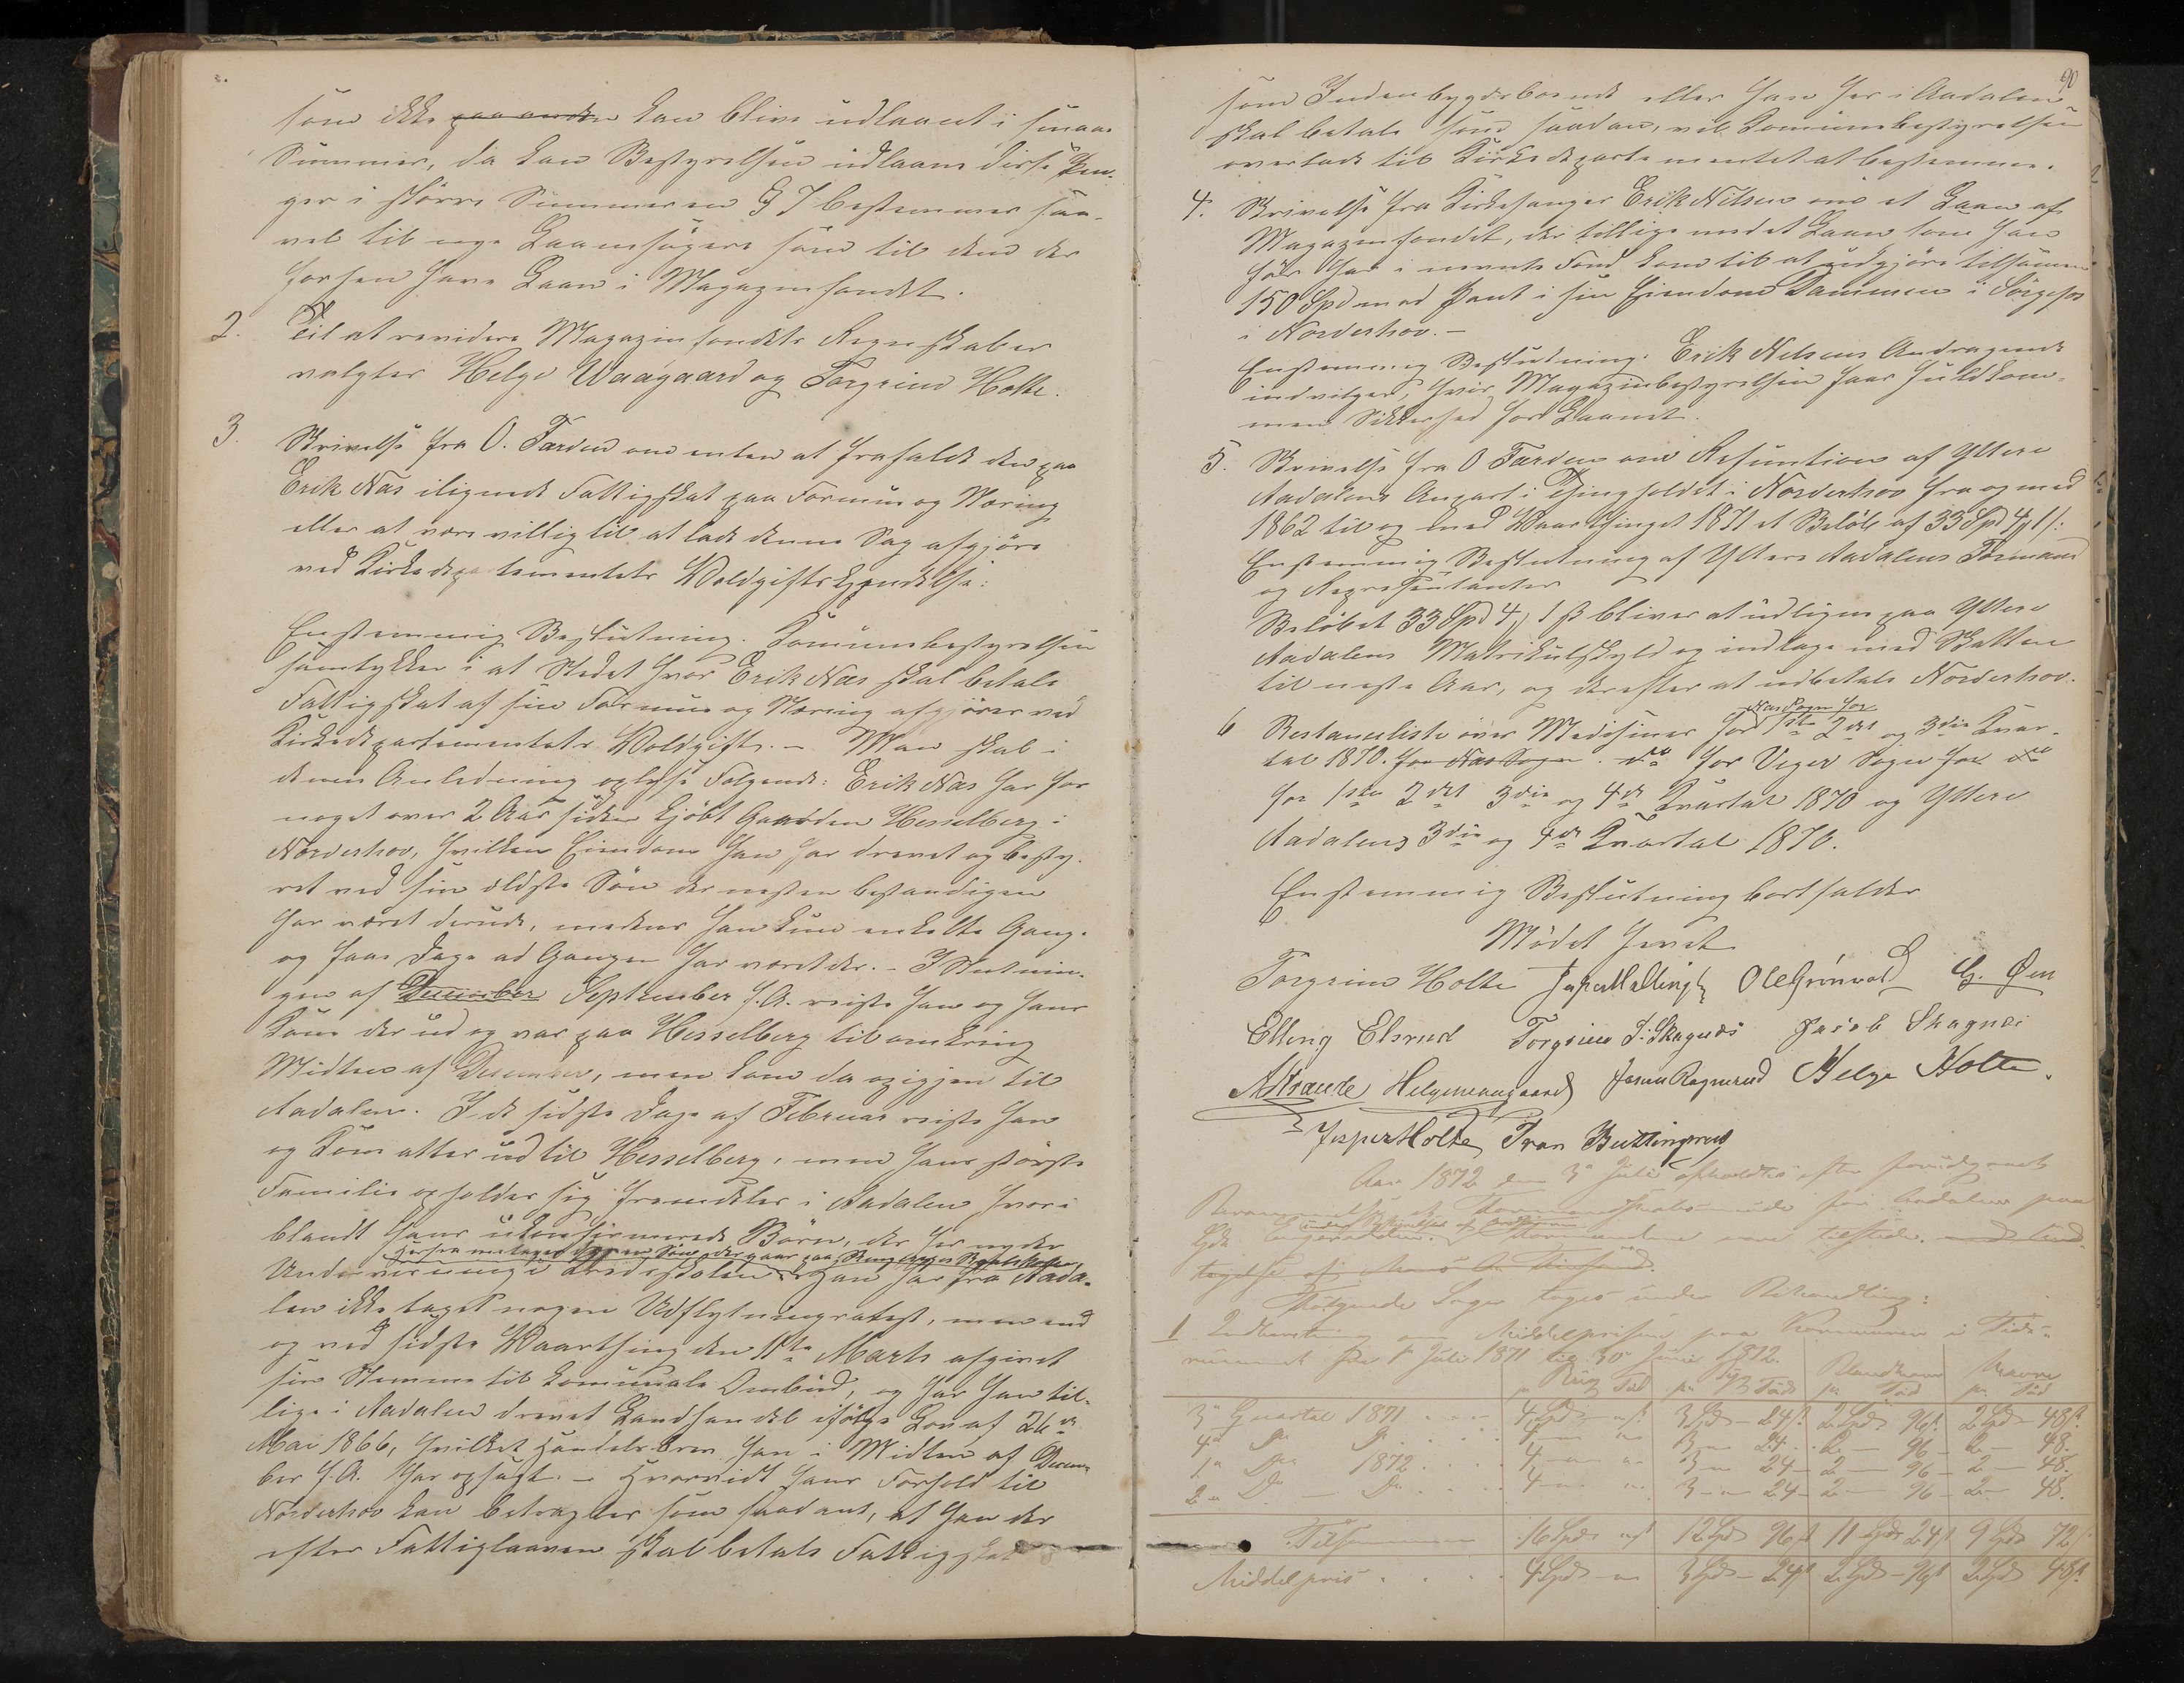 som ikke paa anden kan blive udlaant i smaae
Summer, da kan Bestyrelsen udlaane disse Pen-
ger i större Summer en § 7 bestemmer saa-
vel til nye Laansögere som til dem der
forhen have Laan i Magazinfondet.
2. Til at revidere Magazinfondets Regnskaber
valgtes Helge Waagaard og Torgrim Holte.
3. Skrivelse fra O. Tærden om enten at frafalde den paa
Erik Næs ilignede Fattigskat paa Formue og Næring
eller at være villig til at lade denne Sag afgjöre
ved Kirkedepartementets Voldgiftskjendelse:
Enstemmig Beslutning. Komunebestyrelsen
samtykker i at Stedet hvor Erik Næs skal betale
Fattigskat af sin Formue og Næring afgjöres ved
Kirkedepartementets Voldgift. – Man skal i
denne Anledning oplyse Følgende: Erik Næs har for
noget over 2 Aar siden kjöbt Gaarden Hesselberg i
Norderhov, hvilken Eiendom han har drevet og besty-
ret ved sin ældste Sön der nesten bestandigen
har været derude, medens han kun enkelte Gange
og faae Dage ad Gangen har været der. – I Slutnin-
gen af December September f.A. reiste han og hans
Kone der ud og var paa Hesselberg til omkring
Midten af December, men kom da ogigjen til
Aadalen. I de sidste Dage af Februar reiste han
og Kone atter ud til Hesselberg, men hans störste
Familie opholder sig fremdeles i Aadalen hvori-
blandt hans ukonfirmerede Börn, der her nyder
Herfra undtages dog en Sön der gaar paa Ringeriges Realskole
Underviisning i Kredsskolen. Han har fra Aada-
len ikke taget nogen Udflytningsatest, men end
og ved sidste Vaarthing den 11te Marts afgivet
sin Stemme til komunale Ombud, og har han til-
lige i Aadalen drevet Landhandel ifölge Lov af 26de
Mai 1866, hvilket Handelsbrev han i Midten af Decem-
ber f.A. har opsagt. – Hvorvidt hans Forhold til
Norderhov kan betragtes som saadant, at han der
efter Fattigloven skal betale Fattigskat
90
som Indenbygdsboende eller han her i Aadalen
skal betale som saadan, vil Komunebestyrelsen
overlade til Kirkedepartementet at bestemme.
4. Skrivelse fra Kirkesanger Erik Nilsen om et Laan af
Magazinfondet, der tillige med et Laan som han
för har i nevnte Fond kom til at udgjöre tilsammen
150 Spd mod Pant i sin Eiendom Dammen i Sörgefos
i Norderhov. –
Enstemmig Beslutning: Erik Nilsens Andragende
indvilges, hvis Magazinbestyrelsen faar fuldkom-
men Sikkerhed for Laanet.
5. Skrivelse fra O Tærden om Refuntion af Ytere
Aadalens Anpart i Thingholdet i Norderhov fra og med
1862 til og med Vaarthinget 1871 et Beløb af 33 Spd 4 1
Enstemmig Beslutning af Ytere Aadalens Formænd
og Representanter
Belöbet 33 Spd 4 1 ß bliver at udligne paa Ytere
Aadalens Matrikulskyld og indtage med Skatten
til neste Aar, og derefter at udbetale Norderhov.
Næs Sogn for
6 Restanceliste over Medesiner for 1ste 2det og 3die Kvar-
tal 1870. for Næs Sogn. do for Viger Sogn for do
for 1ste 2det 3die og 4de Qvartal 1870 og Ytere
Aadalens 3die og 4de Qvartal 1870.
Enstemmig Beslutning bortfalder
Mödet hevet
Torgrim Holte Ole Grönvold G. Øen
Elling Elsrud Torgrim J. Skagnæs Jacob Skagnæs
A Strande Helge Waagaard Ragnerud Helge Holte.
Jesper Holte Iver Buttingsrud
Aar 1872 den 3de Juli afholdtes efter foreudgaaet
Formandskabsmöde for Aadalen paa
under Bestyrelse af Ordföreren
tilstede.
Fölgende Sager toges under Behandling:
1 Middelprisene paa Kornvarer i Tids-
rummet fra 1 Juli 1871 til 30 Juni 1872.
Rug Tde Byg Tde Blandkorn Tde Havre Tde
3de Qvartal 1871 . . . 4 Spd – 3 Spd – 24 ß 2 Spd 96 ß 2 Spd 48 ß
4de Do Do . . . 4 – 3 – 24 – 2 – 96 – 2 – 48.
1ste Do 1872 . . . 4 – 3 – 24 – 2 – 96 – 2 – 48.
2det Do – Do . . . 4 – 3 – 24 – 2 – 96 – 2 – 48.
Tilsammen 16 Spd 12 Spd 96 ß 11 Spd 24 ß 9 Spd 72 ß
Middelpris . . . 4 Spd – 3 Spd – 24 ß 2 Spd – 96 ß 2 Spd 48 ß